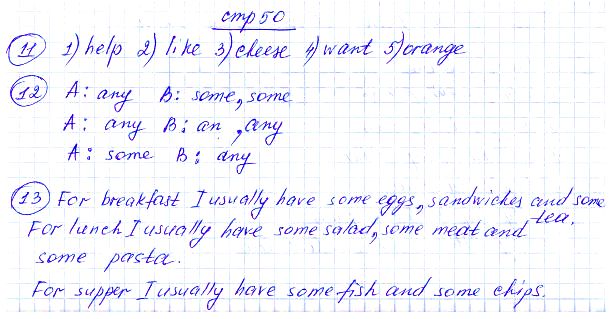 стр 50
11 1) help 2) like 3) cheese 4) want 5) orange
12 A: any B: some, some
A: any B: an, any
A: some B: any
13 For breakfast I usually have some eggs, sandwiches and some tea.
For lunch I usually have some salad, some meat and
some pasta.
For supper I usually have some fish and some chips.